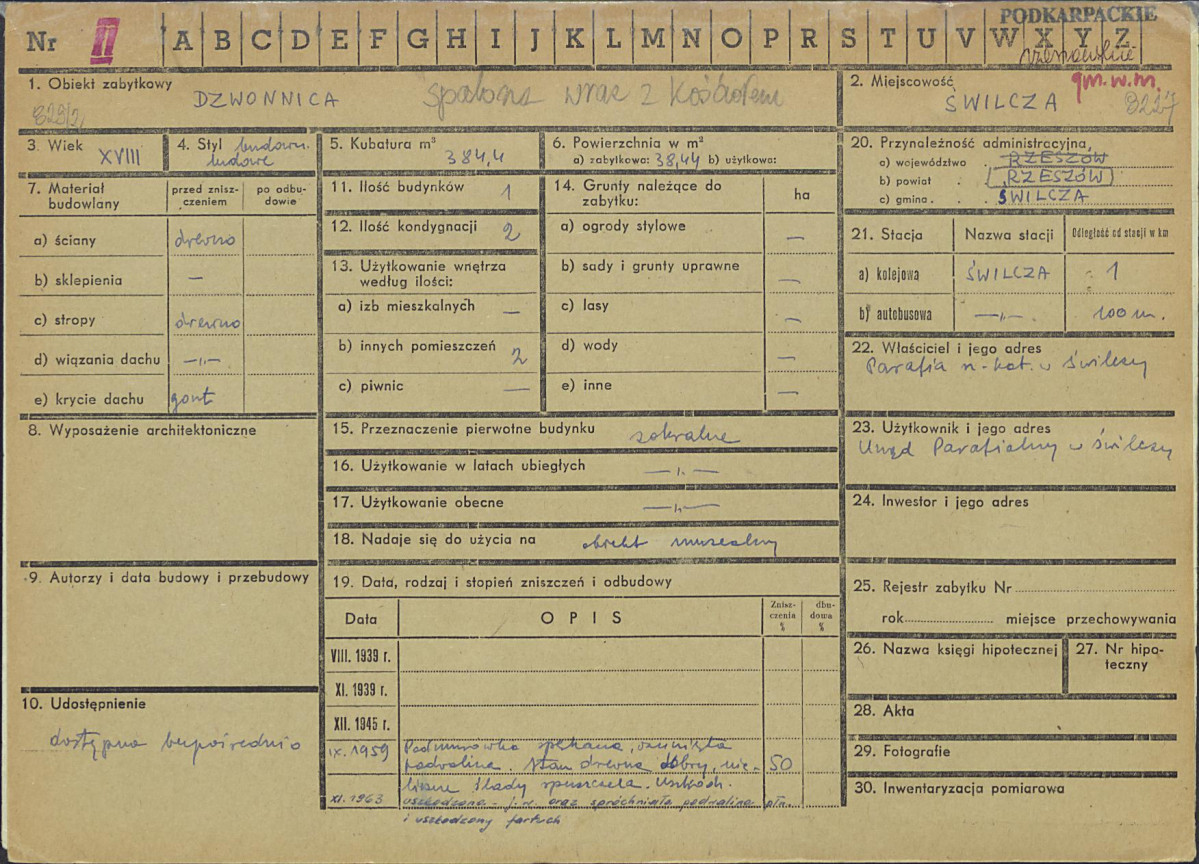 PODKARPACKIE
Nr II A B C D E F G H I J K L M N O P R S T U V W X Y Z
rzeszowskie
1. Obiekt zabytkowy
DZWONNICA
spalona wraz z kościołem
2. Miejscowość
gm.w.m.
ŚWILCZA
3. Wiek
XVIII
4. Styl budown.
ludowe
5. Kubatura m³
384,4
6. Powierzchnia w m²
a) zabytkowa: 38,44 b) użytkowa:
20. Przynależność administracyjna
a) województwo RZESZÓW
b) powiat RZESZÓW
c) gmina ŚWILCZA
7. Materiał budowlany
przed znisz-
czeniem
po odbu-
dowie
a) ściany drewno
b) sklepienia —
c) stropy drewno
d) wiązania dachu —„—
e) krycie dachu gont
11. Ilość budynków 1
12. Ilość kondygnacji 2
13. Użytkowanie wnętrza
według ilości:
a) izb mieszkalnych —
b) innych pomieszczeń 2
c) piwnic —
14. Grunty należące do
zabytku:
ha
a) ogrody stylowe —
b) sady i grunty uprawne —
c) lasy —
d) wody —
e) inne —
21. Stacja
Nazwa stacji
Odległość od stacji w km
a) kolejowa ŚWILCZA 1
b) autobusowa —„— 100 m.
22. Właściciel i jego adres
Parafia rz-kat. w Świlczy
8. Wyposażenie architektoniczne
15. Przeznaczenie pierwotne budynku sakralne
16. Użytkowanie w latach ubiegłych —„—
17. Użytkowanie obecne —„—
18. Nadaje się do użycia na obiekt muzealny
23. Użytkownik i jego adres
Urząd Parafialny w Świlczy
24. Inwestor i jego adres
9. Autorzy i data budowy i przebudowy
19. Data, rodzaj i stopień zniszczeń i odbudowy
Data
OPIS
Znisz-
czenia
%
dbu-
dowa
%
VIII. 1939 r.
XI. 1939 r.
XII. 1945 r.
IX. 1959 Podmurówka spękana, usunięta
podwalina. Stan drewna dobry, nie- 50
liczne ślady spuszczela.
XI. 1963 uszkodzona - j.w. oraz spróchniała podwalina płn.
i uszkodzony fartuch
25. Rejestr zabytku Nr
rok miejsce przechowywania
26. Nazwa księgi hipotecznej
27. Nr hipo-
teczny
10. Udostępnienie
dostępna bezpośrednio
28. Akta
29. Fotografie
30. Inwentaryzacja pomiarowa